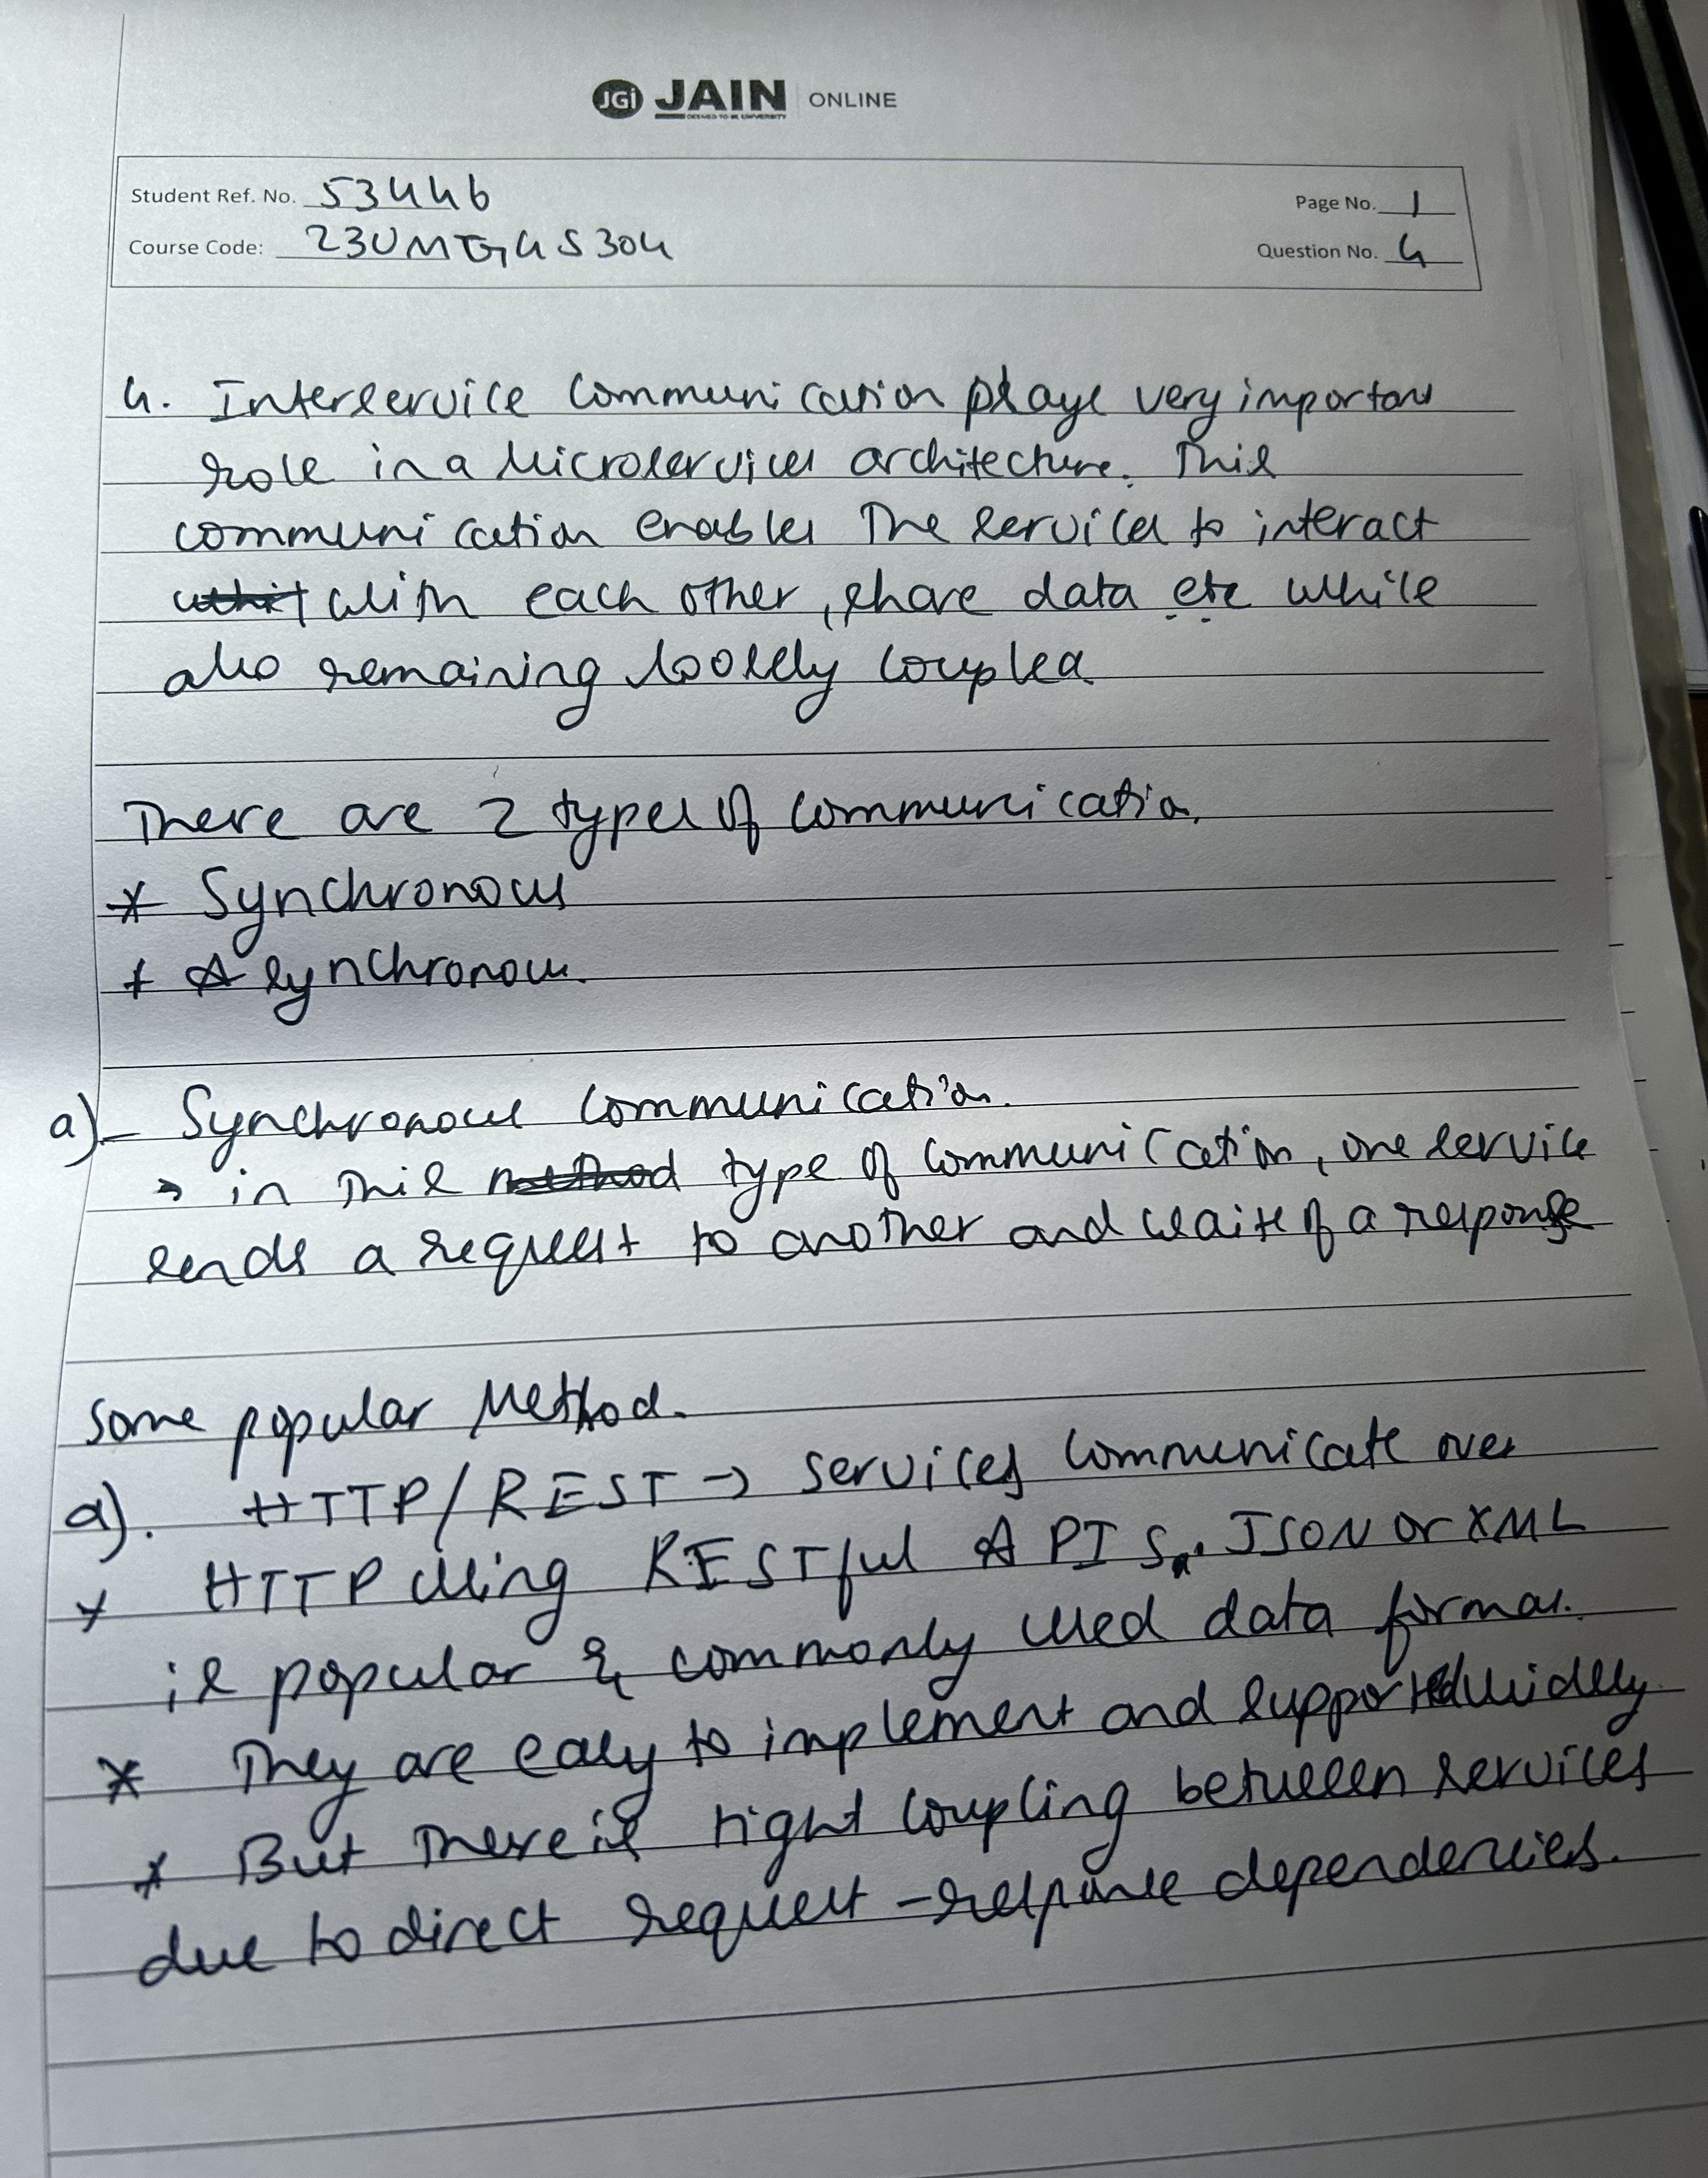 JGi JAIN ONLINE
DEEMED-TO-BE UNIVERSITY
Student Ref. No. 53446
Page No. 1
Course Code: 23UMGAS304
Question No. 4
4. Interservice Communication plays very important
role in a Microservices architecture. This
communication enables The services to interact
with each other, share data etc while
also remaining loosely coupled
There are 2 types of Communication.
* Synchronous
* Asynchronous.
a) - Synchronous Communication.
→ in this method type of Communication, one service
sends a request to another and waits of a response
Some popular Method.
a). HTTP/REST → Services Communicate over
* HTTP using RESTful APIS. JSON or XML
is popular & commonly used data format.
* They are easy to implement and supported widely
* But There is tight Coupling between services
due to direct request - response dependencies.